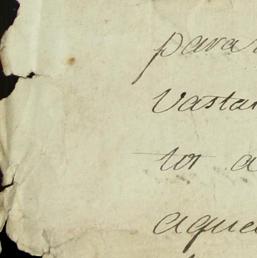 para
Vasta
tos a
aque